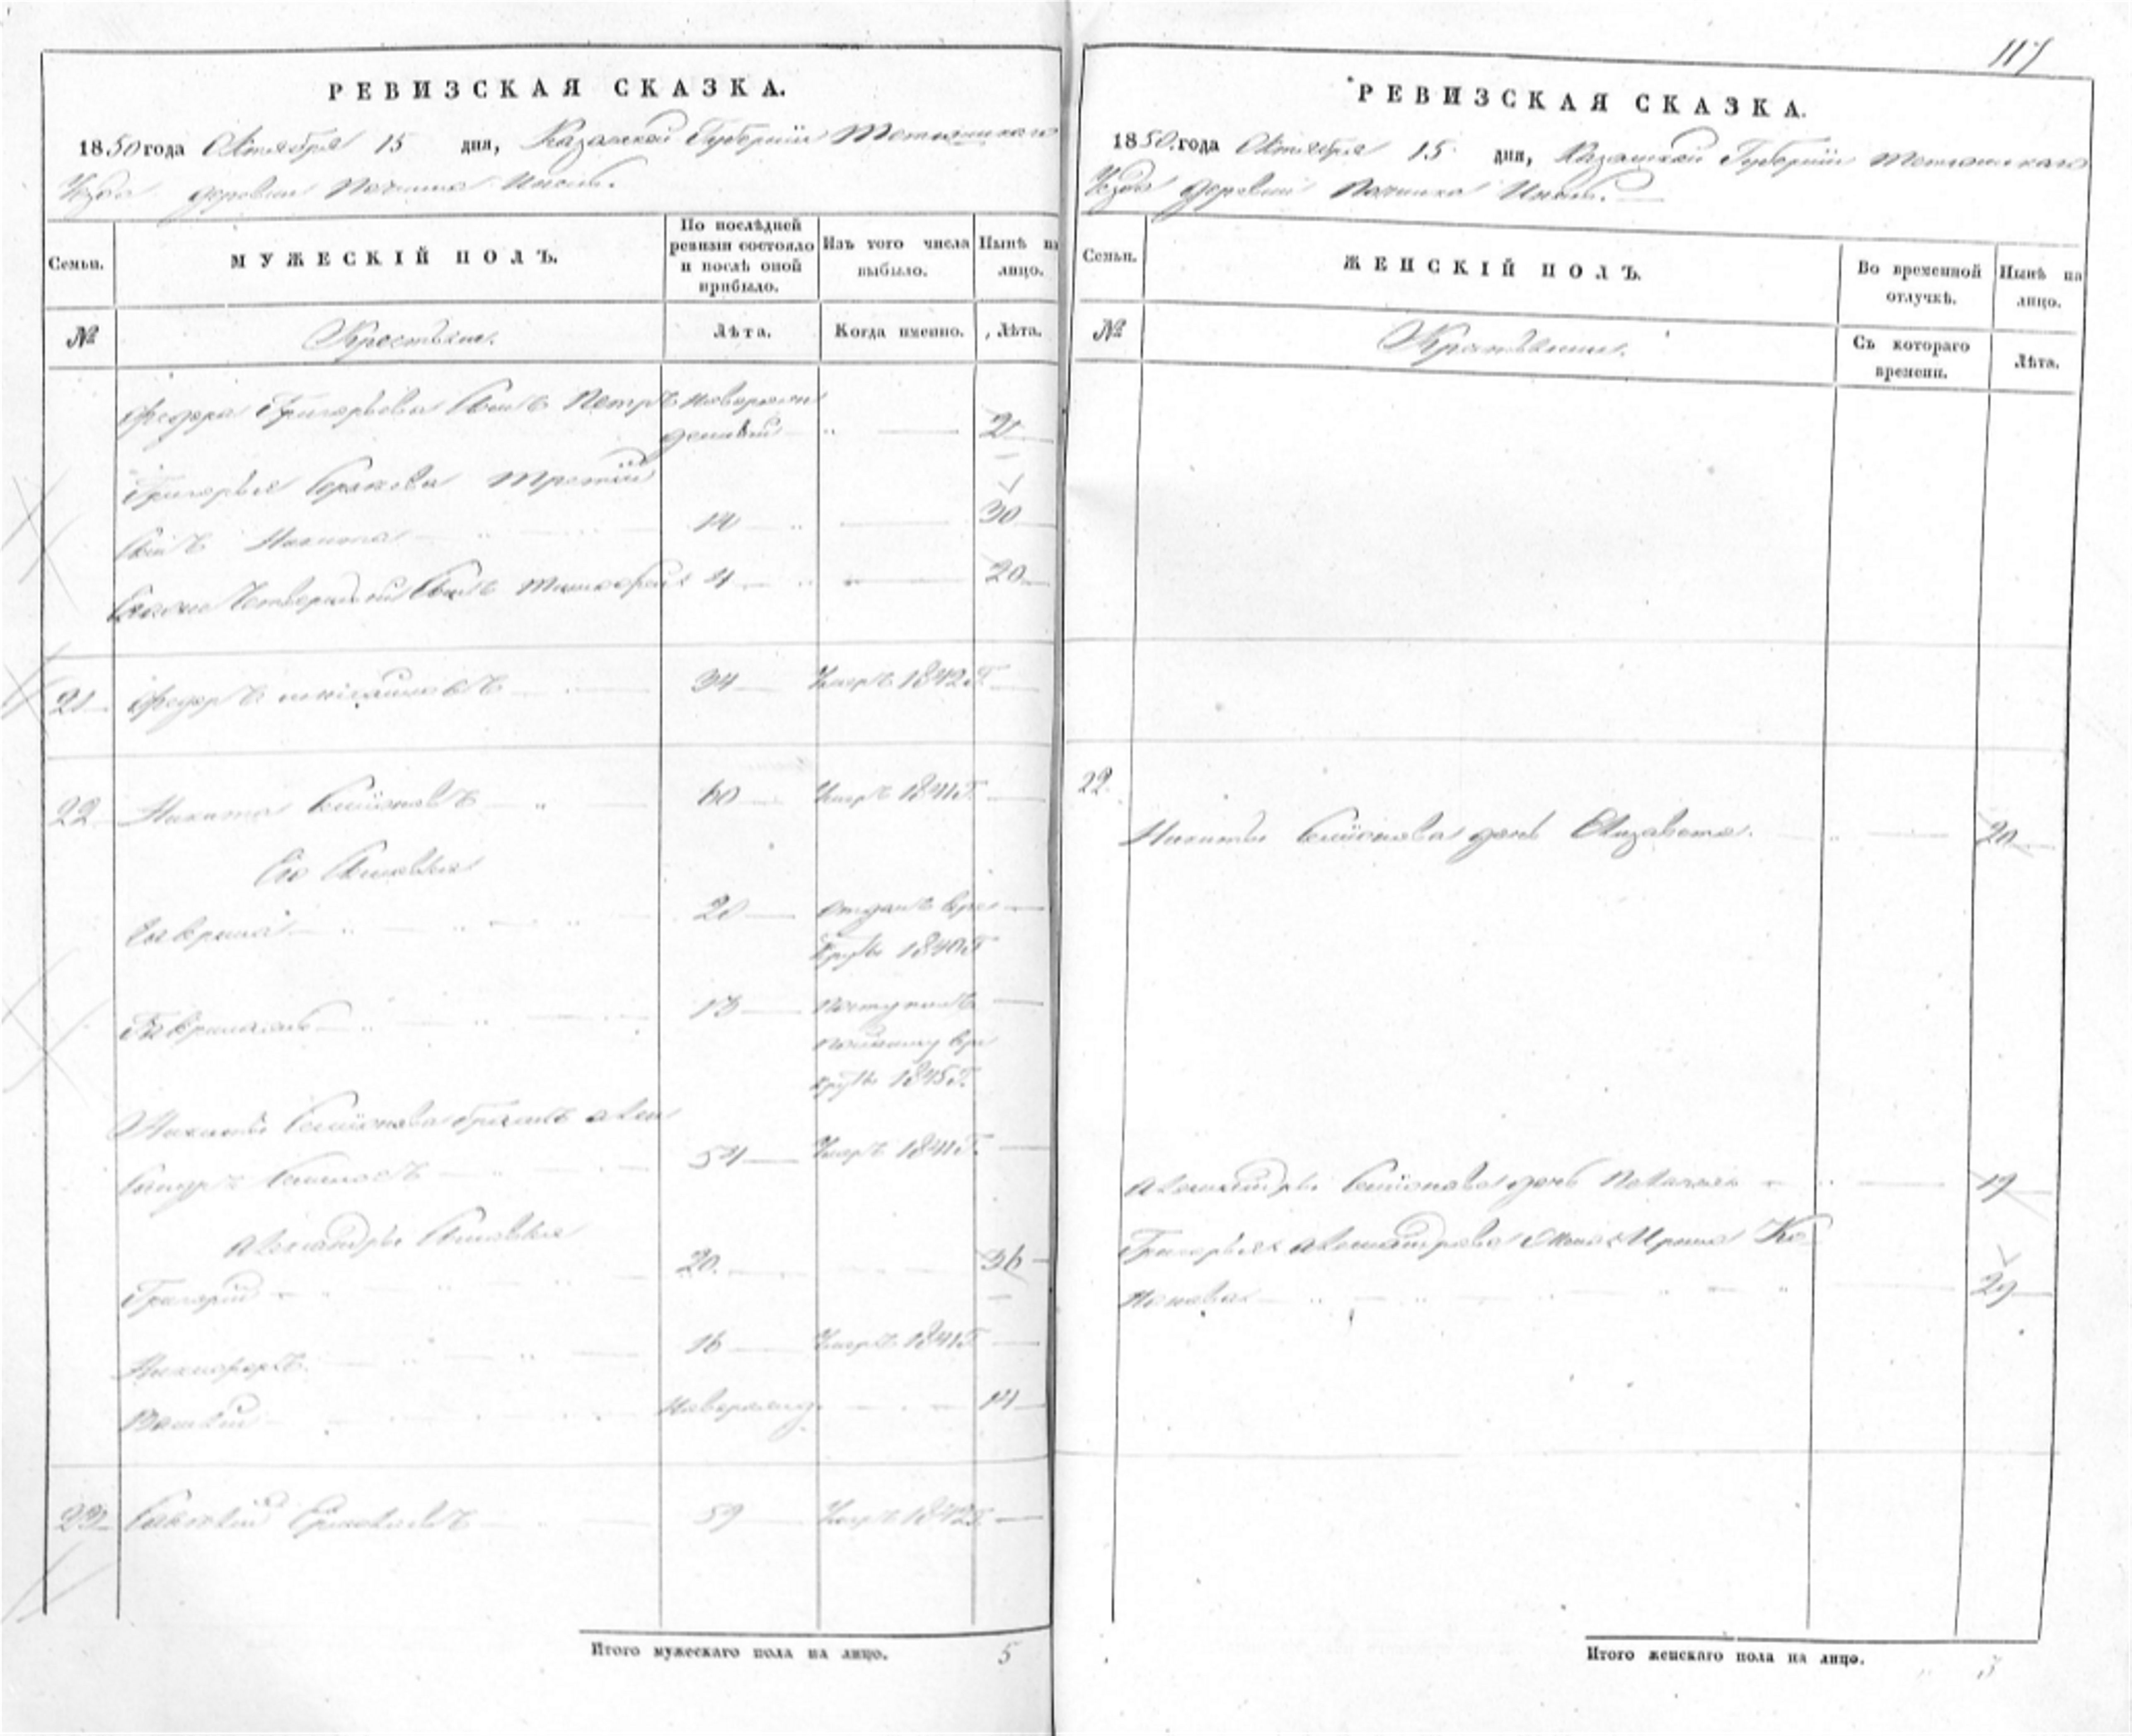 117
РЕВИЗСКАЯ СКАЗКА.
1850 года Октября 15 дня, Казанской Губернии Тетюшскаго
Уезда деревни Починка
Семьи.
МУЖЕСКІЙ ПОЛЪ.
По послѣдней ревизіи состояло и послѣ оной прибыло.
Изъ того числа выбыло.
Нынѣ на лицо.
№
Крестьяне.
Лѣта.
Когда именно.
Лѣта.
Федора Григорьева Сынъ Петръ новорож
денный 2
Григорья третій
Сынъ Никита 14 30
Его же Четвертый Сынъ 4 20
21 Федоръ 34 Умеръ 1842 Г.
22 Никита Семіоновъ 60 Умеръ 1841 Г.
Его Сыновья
Гаврила 20 отданъ врек
руты 1840 Г
13 поступилъ
врек
руты 1845 Г.
Никиты Семіонова братъ Алек
сандръ Семіоновъ 54 Умеръ 1841 Г.
Александры Сыновья
Григорій 20. 36
Никифоръ 16 Умеръ 1841 Г
Василій новорожд. 14
23 59 Умеръ 1842 Г.
Итого мужескаго пола на лицо. 5
РЕВИЗСКАЯ СКАЗКА.
1850 года Октября 15 дня, Казанской Губернии Тетюшскаго
Уезда деревни Починка
Семьи.
ЖЕНСКІЙ ПОЛЪ.
Во временной отлучкѣ.
Нынѣ на лицо.
№
Крестьянки.
Съ котораго времени.
Лѣта.
22.
Никиты Семіонова дочь Елизавета. 20
Александры Семіонова дочь Пелагея 19
Григорья Александрова жена Ирина Ко
нонова 29
Итого женскаго пола на лицо. 3